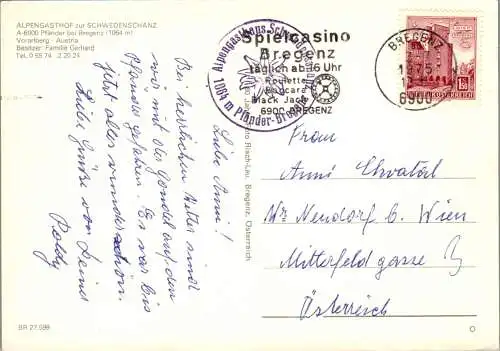 ALPENGASTHOF zur SCHWEDENSCHANZ
A-6900 Pfänder bei Bregenz (1064 m)
Vorarlberg - Austria
Besitzer: Familie Gerhard
Tel. 0 55 74 2 20 24
Alpengasthaus Schwedenschanz
1064 m Pfänder-Bregenz
Spielcasino
Bregenz
Täglich ab 16 Uhr
Roulette
Baccara
Black Jack
6900 BREGENZ
BREGENZ
6900
REPUBLIK ÖSTERREICH
Liebe Anni!
Bei herrlichen Wetter sind
wir mit der Gondel auf den
Pfänder gefahren. Es war bis
jetzt alles wunderschön.
Liebe Grüße von Deine
Poldy
Risch-Lau, Bregenz, Österreich
Frau
Anni Chvatal
Wr Neudorf b. Wien
Mitterfeldgasse
Österreich
BR 27.598